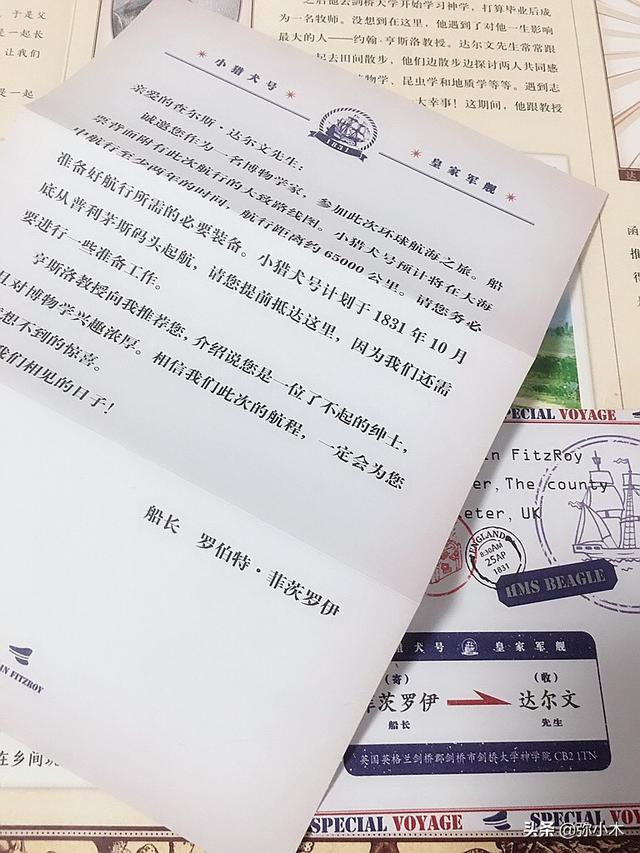 之后他去剑桥大学开始学习神学，打算毕业后成
为一名牧师。没想到在这里，他遇到了对他一生影响
最大的人——约翰·亨斯洛教授。达尔文先生常常跟
起去田间散步，他们边散步边探讨两人共同感
物学、昆虫学和地质学等等。遇到志
大幸事！这期间，他跟教授
于是父
是一起长
让我们
是一起
小猎犬号
1831
皇家军舰
亲爱的查尔斯·达尔文先生：
诚邀您作为一名博物学家，参加此次环球航海之旅。船
票背面附有此次航行的大致路线图。小猎犬号预计将在大海
中航行至少两年的时间，航行距离约 65000 公里。请您务必
准备好航行所需的必要装备。小猎犬号计划于 1831 年 10 月
底从普利茅斯码头起航，请您提前抵达这里，因为我们还需
要进行一些准备工作。
亨斯洛教授向我推荐您，介绍说您是一位了不起的绅士，
且对博物学兴趣浓厚。相信我们此次的航程，一定会为您
想不到的惊喜。
我们相见的日子！
船长 罗伯特·菲茨罗伊
IN FITZROY
在乡间
SPECIAL VOYAGE
in FitzRoy
er, The county
eter, UK
ENGLAND
8:30AM
25AP
1831
HMS BEAGLE
猎犬号 皇家军舰
(寄) (收)
菲茨罗伊 达尔文
船长 先生
英国英格兰剑桥郡剑桥市剑桥大学神学院 CB2 1TN
SPECIAL VOYAGE SPECIAL VOYAGE
头条 @弥小木